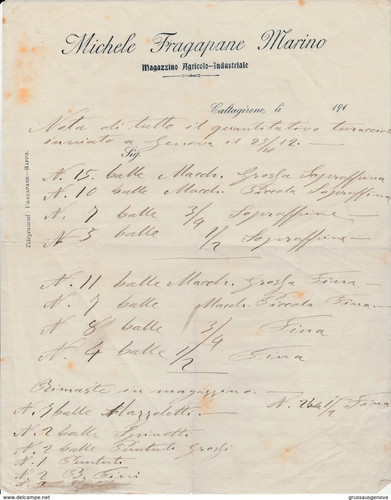 Michele Fragapane Marino
Magazzino Agricolo-Industriale
Caltagirone, li 191
Nota di tutto il quantitativo turaccioli
inviato a Genova il 23/10/12.
Sig.
N. 15 balle Macch. Grossa Sopraffina
N. 10 balle Macch. Piccola Sopraffina
N. 7 balle 3/4 Sopraffine
N. 5 balle 1/2 Sopraffine
N. 11 balle Macch. Grossa Fina
N. 7 balle Macch. Piccola Fina
N. 8 balle 3/4 Fina
N. 4 balle 1/2 Fina
Rimaste in magazzino
N. 3 balle Mazzoletti N. 1/2 Fina
N. 2 balle Spinotti
N. 2 balle Puntuti Grossi
N. 1 Puntuti
N. 2 Fini
Telegrammi: Fragapane-Marino
www.delcampe.net
grussausgenova